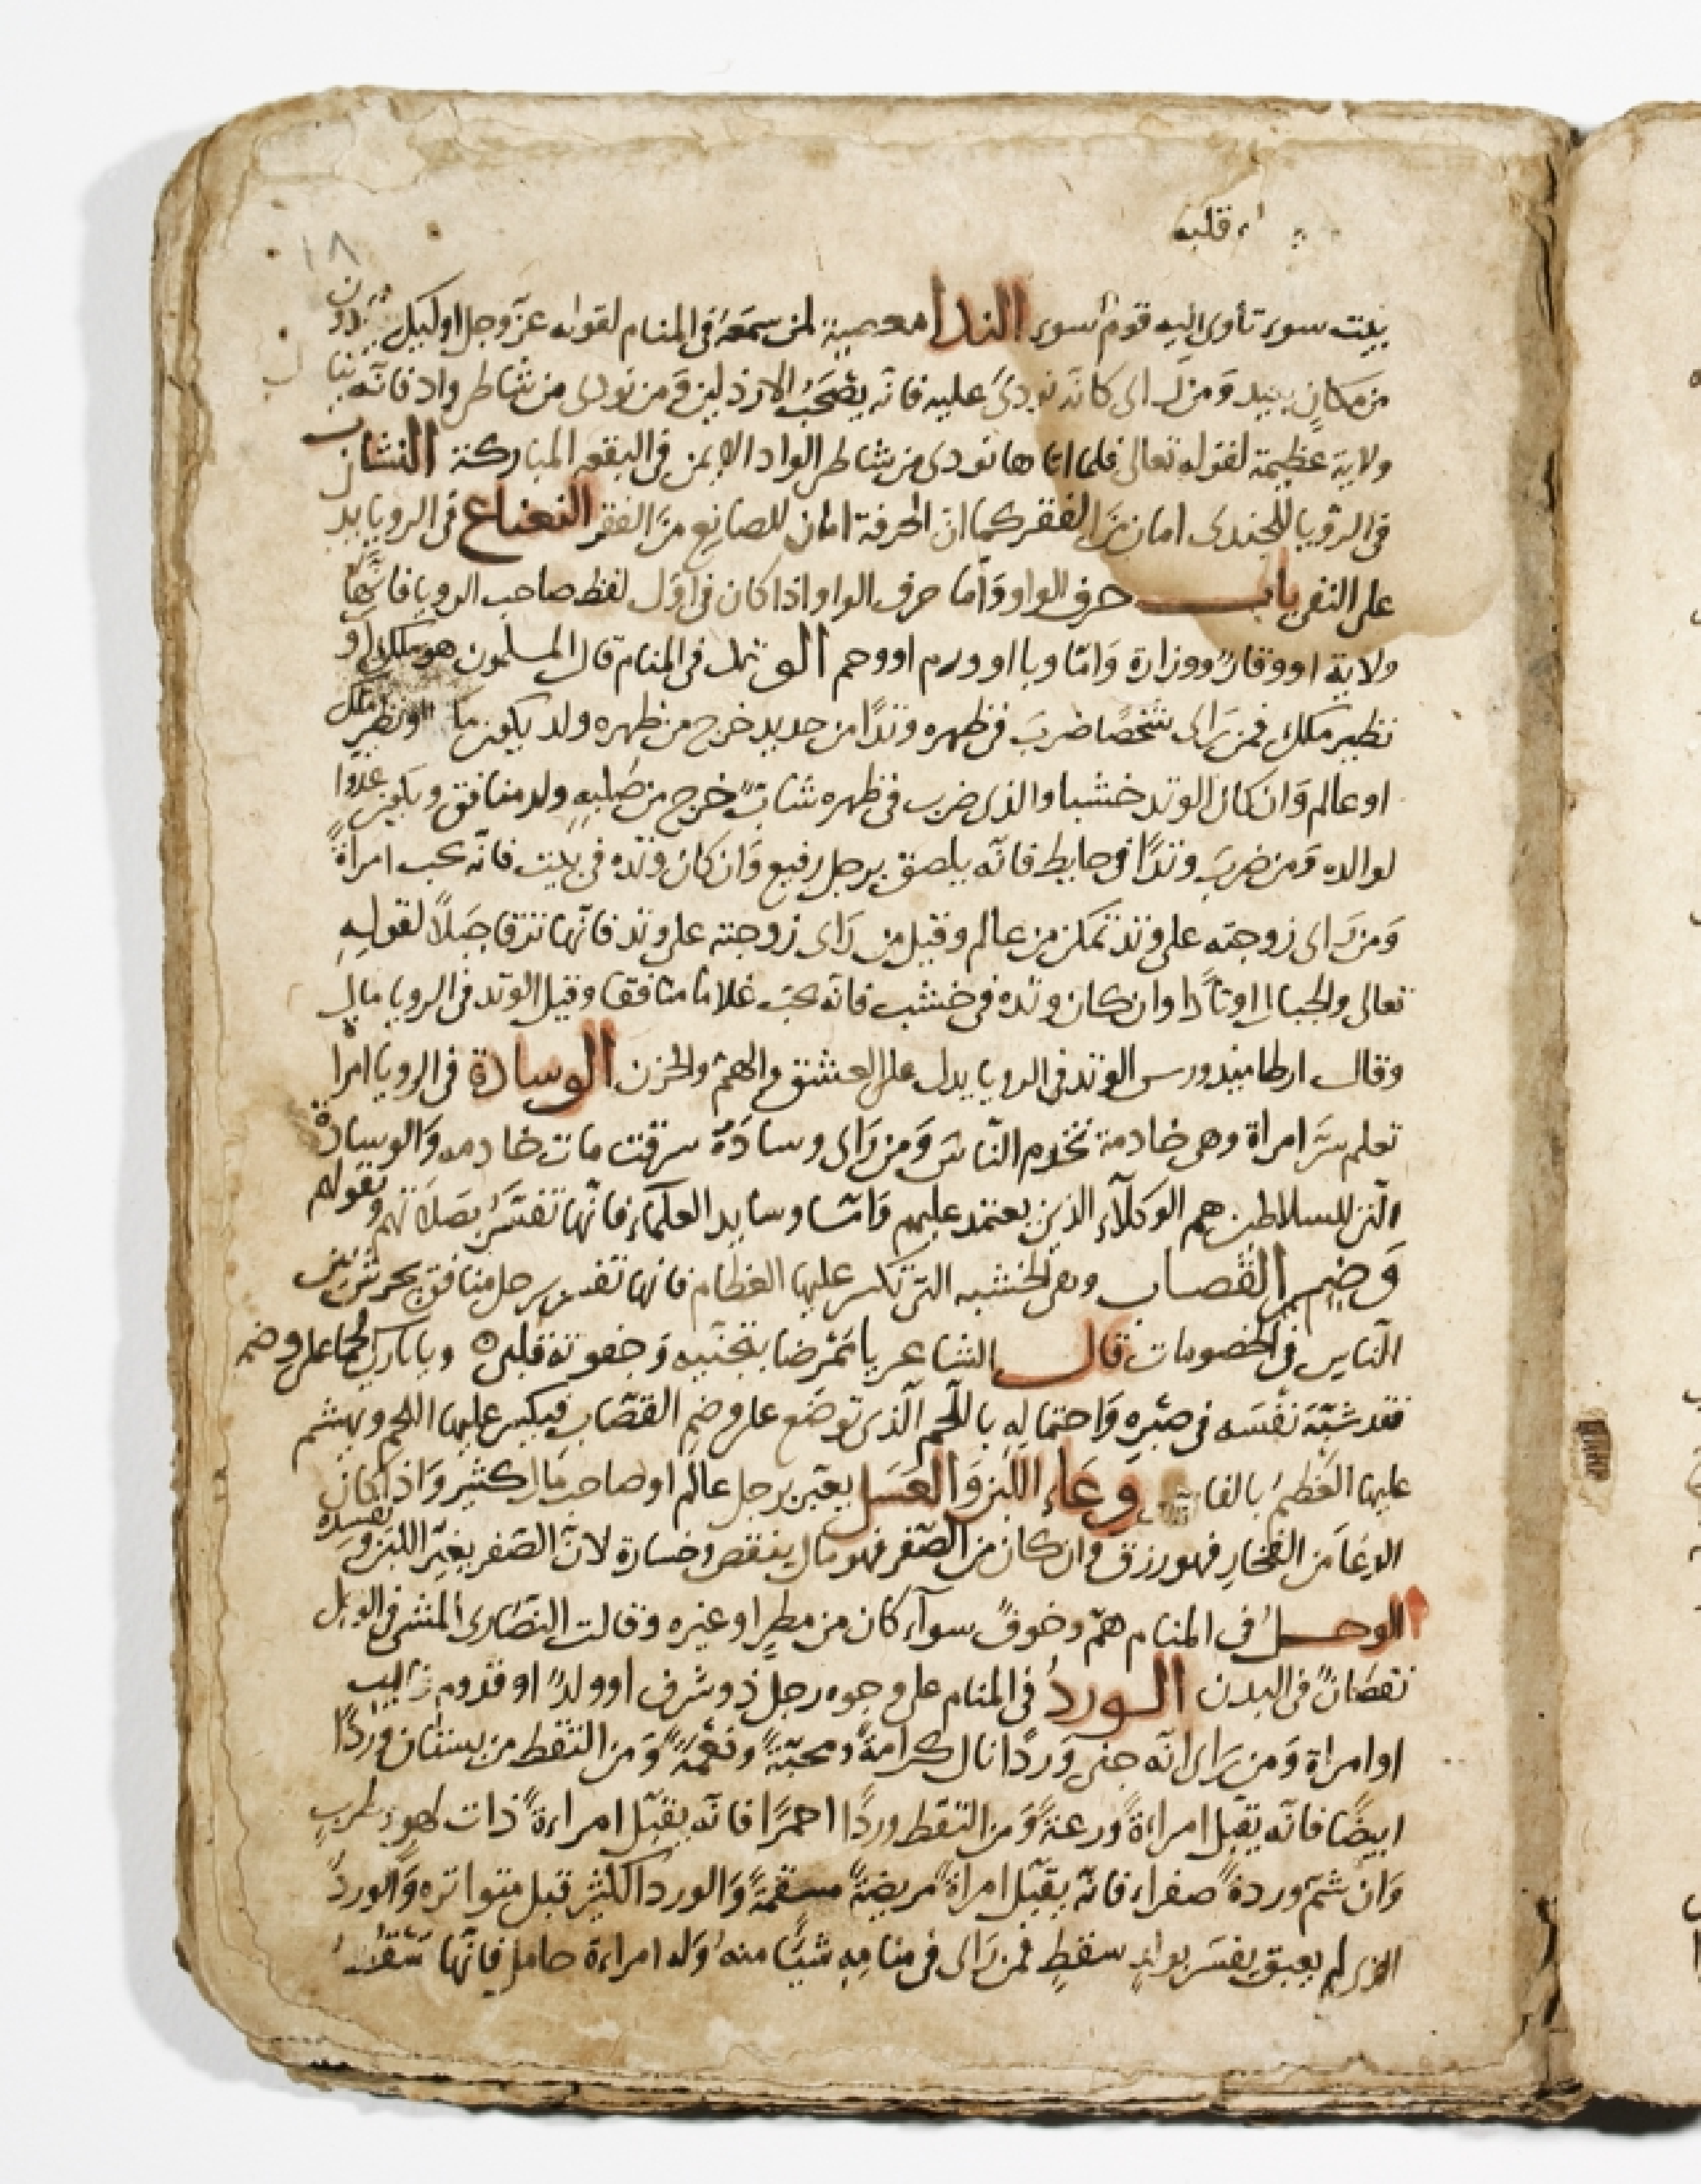 قلبه
١٨
بيت سوء تأوى اليه قوم سوء الندا معصية لمن سمعه في المنام لقوله عز وجل اوليك ينادون
من مكان بعيد ومن راى كانه نودى عليه فانه يصحب الارذلين ومن نودى من شاطى واد فانه ينال
ولاية عظيمة لقوله تعالى فلما اتاها نودى من شاطى الواد الايمن في البقعة المباركة النشاب
في الرويا للجندى امان من الفقر كما ان الحرفة امان للصانع من الفقر النعناع في الرويا يدل
على النعي باب حرف الواو واما حرف الواو اذا كان في اول لفظ صاحب الرويا فانها
ولاية او وقار ووزارة واما وبا او ورم او وحم الوتد في المنام قال المسلمون هو ملك او
نظير ملك فمن راى شخصا ضرب في ظهره وتدا من حديد خرج من ظهره ولد يكون ملكا او نظير ملك
او عالم وان كان الوتد خشبا والذى ضرب في ظهره شاب خرج من صلبه ولد منافق ويكون عدوا
لوالده ومن ضرب وتدا في حايط فانه يلصق برجل رفيع وان كان وتده في بيت فانه يحب امراة
ومن راى زوجته على وتد تمكن من عالم وقيل من راى زوجته على وتد فانها تزرقا جبلا لقوله
تعالى والجبال اوتادا وان كان وتده في خشب فانه يحب غلاما منافقا وقيل الوتد في الرويا مال
وقال ارطاميدورس الوتد في الرويا يدل على العشق والهم والحزن الوسادة في الرويا امراة
تعلم سر امراة وهى خادمة تخدم الناس ومن راى وسادة سرقت مات خادمه والوسادة
التى للسلاطين هم الوكلاء الذين يعتمد عليهم واما وسايد العلماء فانها تفسر بصلاتهم وتقولهم
وضم القصاب وهى الخشبه التى تكسر عليها العظام فانها تفسر برجل منافق يجر شر بين
الناس في الخصومات قال الشاعر يا ممرضا بتجنيه وجفوته قلبى ه ويا تارك لحما على وضم
فقد شبه نفسه في صبره واحتماله باللحم الذى توضع على وضم القصاب فيكسر عليها اللحم ويهشم
عليها العظم بالفاس وعاء اللبن والعسل يعبر برجل عالم او صاحب مال كثير واذا كان
الوعا من الفخار فهو رزق وان كان من الصفر فهو مال بنقص وخسارة لان الصفر يغير اللبن ويفسده
الوحل في المنام هم وخوف سواء كان من مطر او غيره وقالت النصارى المشى في الوحل
نقصان في البدن الورد في المنام على وجوه رجل ذو شرف او ولد او قدوم غايب
او امراة ومن راى انه جنى وردا نال كرامة ومحبة ونعمة ومن التقط من بستان وردا
ابيضا فانه يقبل امراءة ورعة ومن التقط وردا احمرا فانه يقبل امراءة ذات لهو وطرب
وان شم وردة صفراء فانه يقبل امراة مريضة مسقمة والورد الكثير قبل متواتره والورد
الذى لم يعبق يفسر بولد سقط فمن راى في منامه شيا منه وله امراءة حامل فانها تسقطه